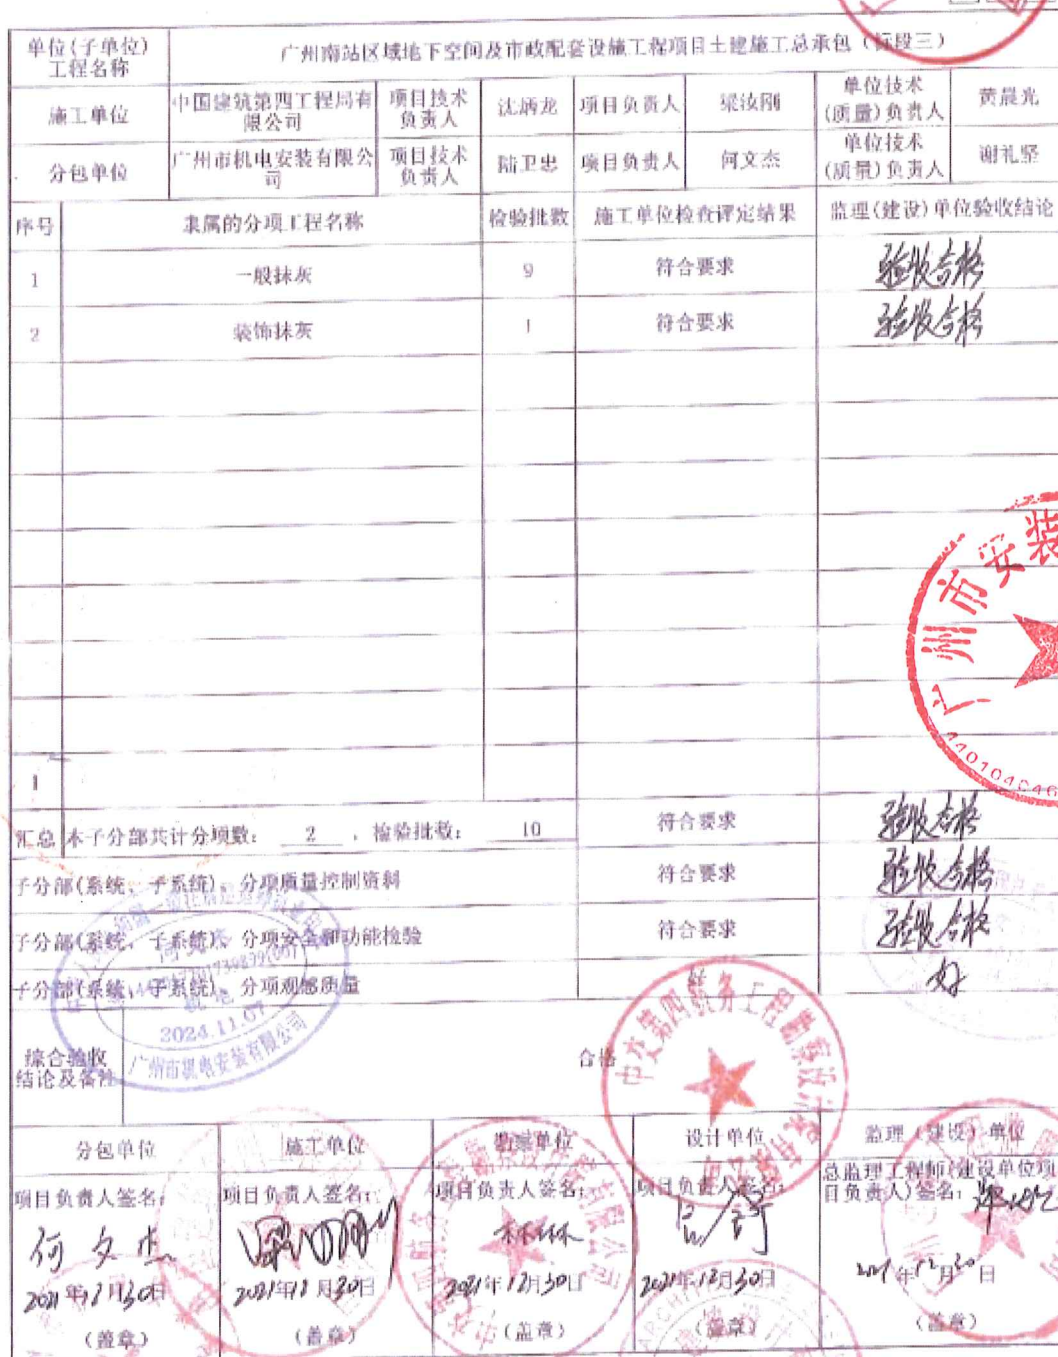 单位(子单位)
工程名称
广州南站区域地下空间及市政配套设施工程项目土建施工总承包（标段三）
施工单位
中国建筑第四工程局有
限公司
项目技术
负责人
沈炳龙
项目负责人
梁汝刚
单位技术
(质量)负责人
黄晨光
分包单位
广州市机电安装有限公
司
项目技术
负责人
陆卫忠
项目负责人
何文杰
单位技术
(质量)负责人
谢礼坚
序号
隶属的分项工程名称
检验批数
施工单位检查评定结果
监理(建设)单位验收结论
1
一般抹灰
9
符合要求
验收合格
2
装饰抹灰
1
符合要求
验收合格
汇总
本子分部共计分项数： 2 ，检验批数： 10
符合要求
验收合格
子分部(系统、子系统)、分项质量控制资料
符合要求
验收合格
子分部(系统、子系统)、分项安全和功能检验
符合要求
验收合格
子分部(系统、子系统)、分项观感质量
好
好
综合验收
结论及备注
合格
2024.11.07
广州市机电安装有限公司
广州市安装
分包单位
施工单位
勘察单位
设计单位
监理（建设）单位
项目负责人签名：
项目负责人签名：
项目负责人签名：
项目负责人签名：
总监理工程师(建设单位项
目负责人)签名：
何文杰
2021年12月30日
2021年12月30日
2021年12月30日
2021年12月30日
2021年12月30日
（盖章）
（盖章）
（盖章）
（盖章）
（盖章）